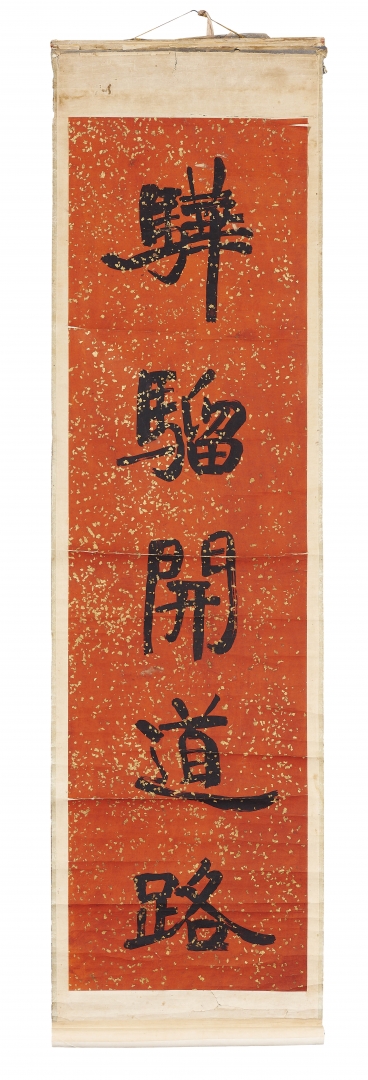 驊騮開道路